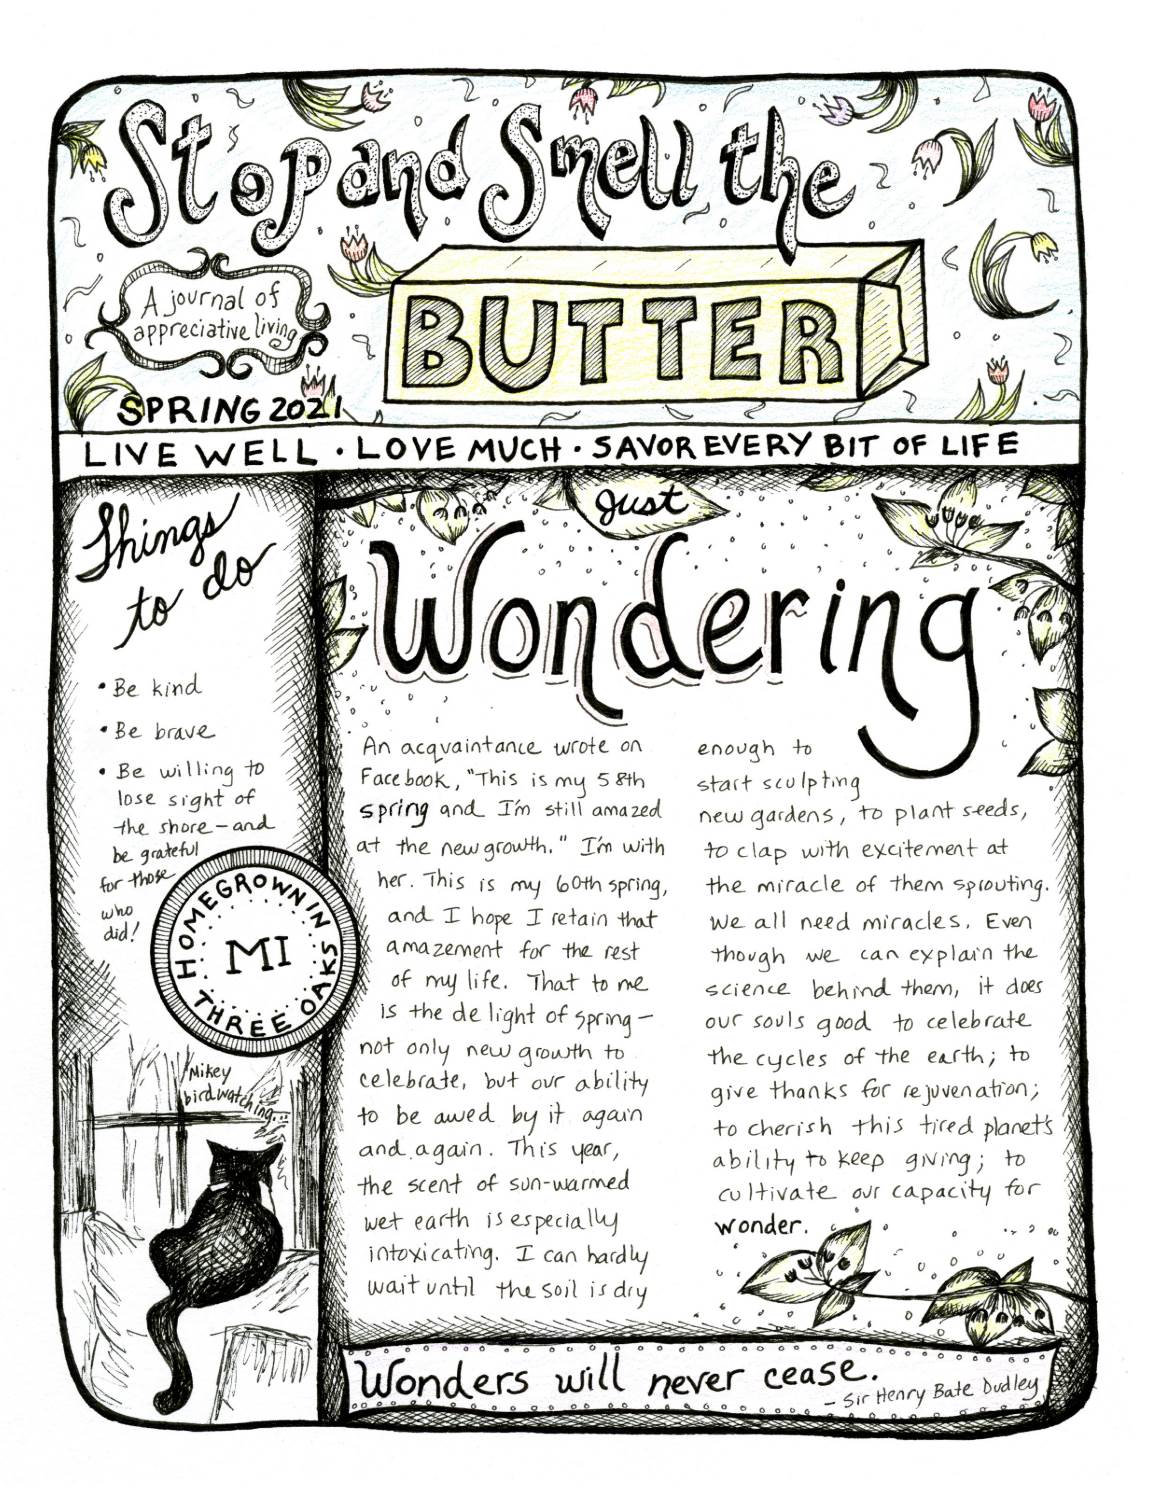 Stop and Smell the
BUTTER
A journal of
appreciative living
SPRING 2021
LIVE WELL · LOVE MUCH · SAVOR EVERY BIT OF LIFE
Things
to do
• Be kind
• Be brave
• Be willing to
lose sight of
the shore – and
be grateful
for those
who
did!
HOMEGROWN IN
MI
THREE OAKS
Mikey
birdwatching...
Just
Wondering
An acquaintance wrote on
Facebook, "This is my 58th
spring and I'm still amazed
at the new growth." I'm with
her. This is my 60th spring,
and I hope I retain that
amazement for the rest
of my life. That to me
is the delight of spring –
not only new growth to
celebrate, but our ability
to be awed by it again
and again. This year,
the scent of sun-warmed
wet earth is especially
intoxicating. I can hardly
wait until the soil is dry
enough to
start sculpting
new gardens, to plant seeds,
to clap with excitement at
the miracle of them sprouting.
We all need miracles. Even
though we can explain the
science behind them, it does
our souls good to celebrate
the cycles of the earth; to
give thanks for rejuvenation;
to cherish this tired planet's
ability to keep giving; to
cultivate our capacity for
wonder.
Wonders will never cease.
– Sir Henry Bate Dudley